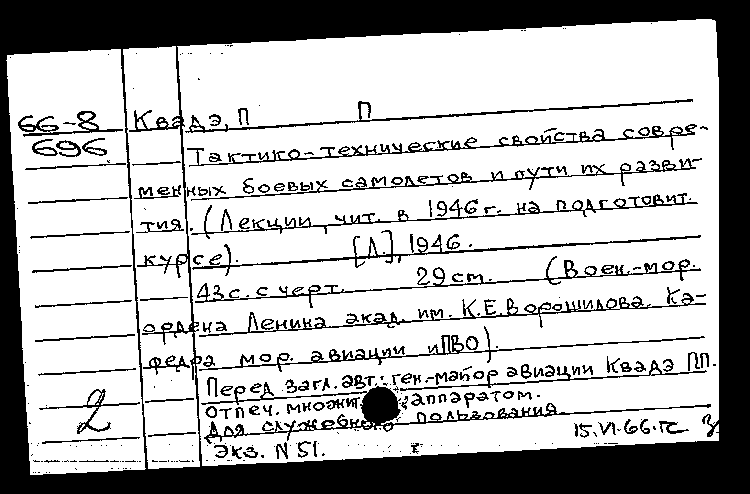 66-8 Квадэ, П П
696 Тактико-технические свойства совре-
менных боевых самолетов и пути их разви-
тия. (Лекции, чит. в 1946 г. на подготовит.
курсе). [Л], 1946.
43 с. с черт. 29 см. (Воен.-мор.
ордена Ленина акад. им. К.Е.Ворошилова. Ка-
федра мор. авиации и ПВО).
Перед загл. авт.: ген.-майор авиации Квадэ П.П.
Отпеч. множит. аппаратом.
Для служебного пользования.
2 Экз. N 51. 15.VI.66.гс